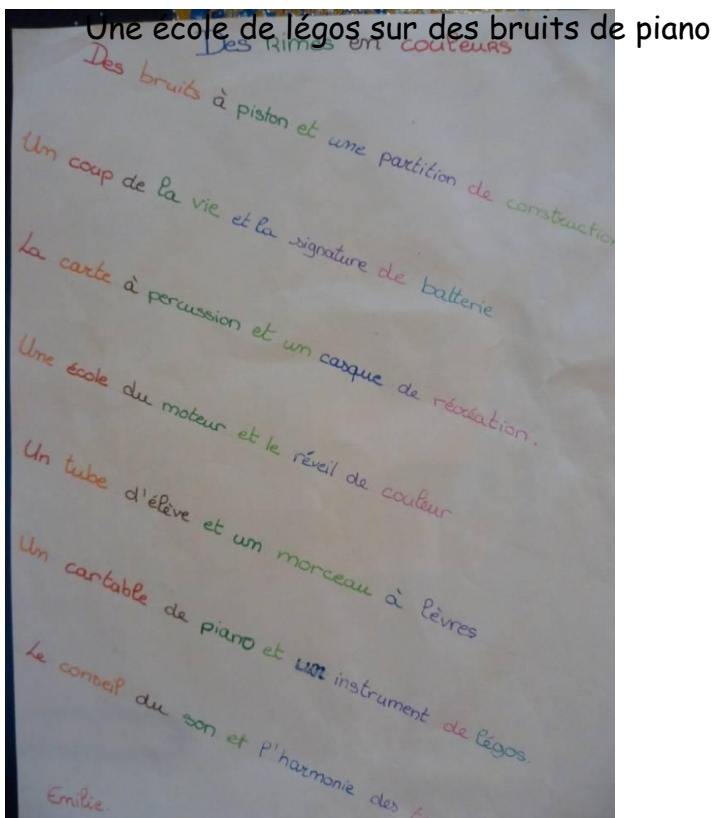 Une école de légos sur des bruits de piano
Des Rimes en couleurs
Des bruits à piston et une partition de construction
Un coup de la vie et la signature de batterie
La carte à percussion et un casque de récréation.
Une école du moteur et le réveil de couleur
Un tube d'élève et un morceau à lèvres
Un cartable de piano et un instrument de légos.
Le conseil du son et l'harmonie des
Emilie.